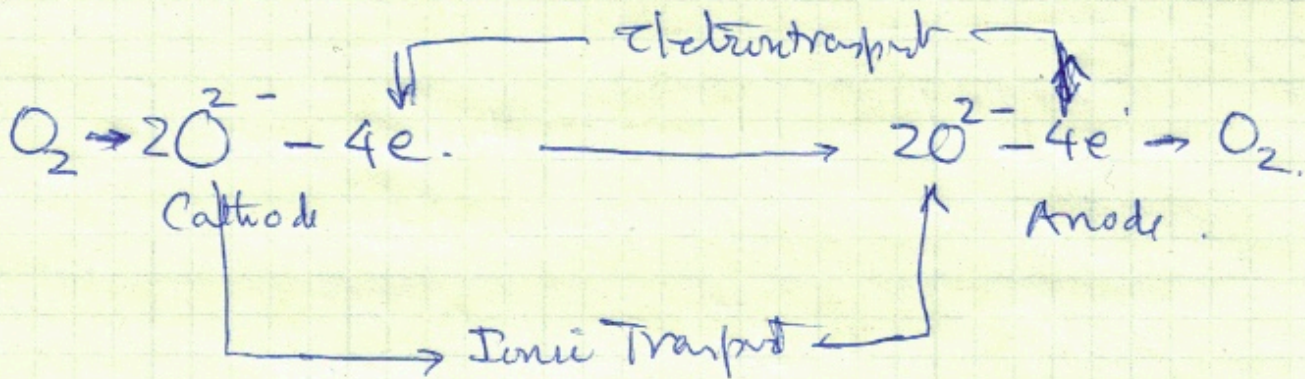 Eletrontrasput
O₂ → 2O²⁻ – 4e. → 2O²⁻ – 4e → O₂.
Cathode Anode.
Ionic Trasput